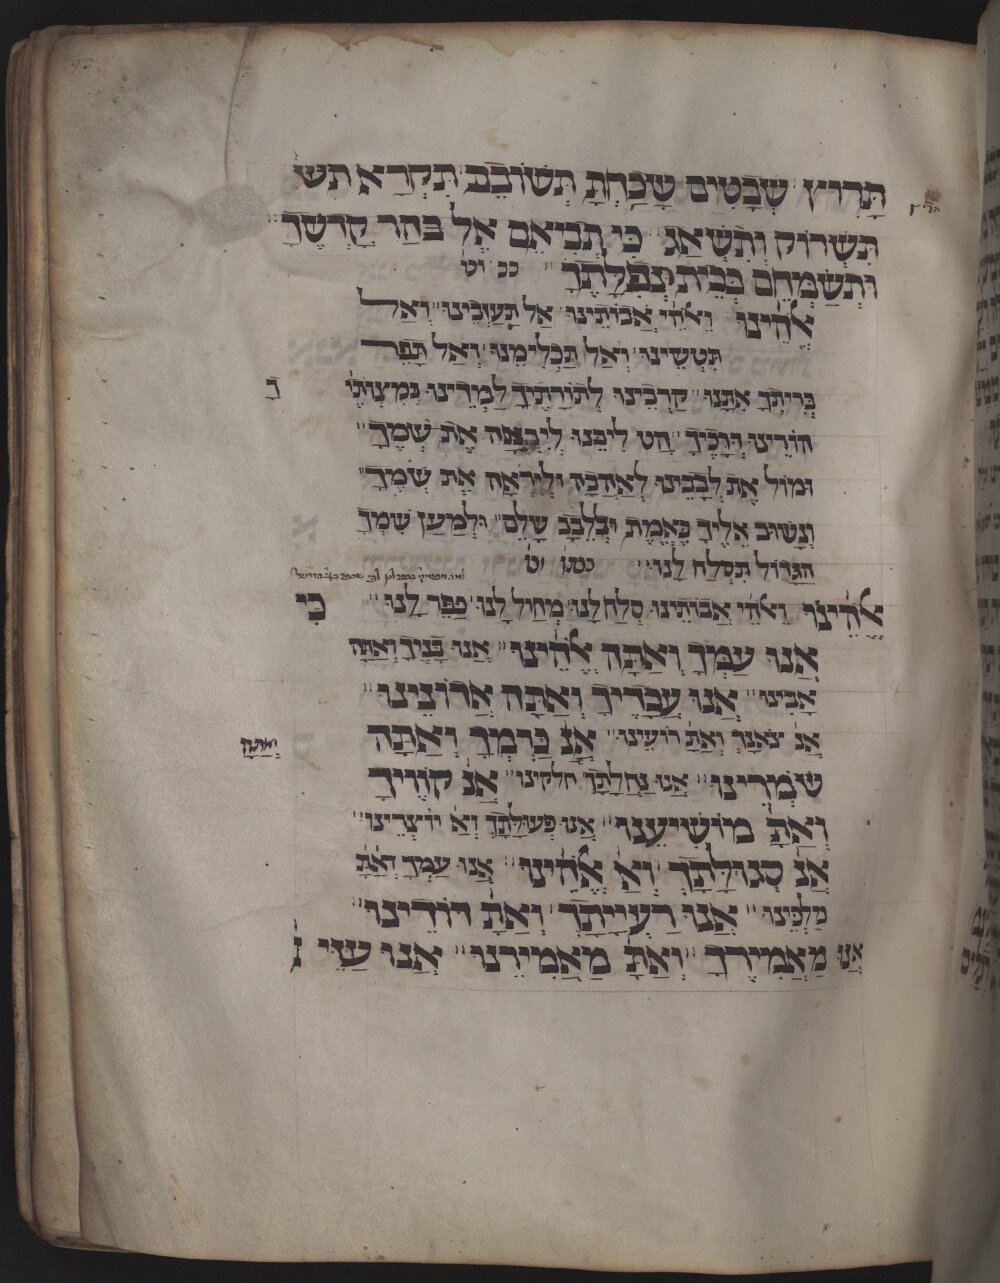 תָּרוּץ שְׁבָטִים שָׁכַחְתָּ תְּשׁוֹבֵב תִּקְרָא תִּשׁ
תִּשְׁרוֹק וְתִשְׁאַג כִּי תְבִיאֵם אֶל בְּהַר קָדְשֶׁךָ
וּתְשַׂמְּחֵם בְּבֵית תְּפִלָּתֶךָ ככ וט
אֱלֹהֵינוּ וֵאלֹהֵי אֲבוֹתֵינוּ אַל תַּעַזְבֵינוּ וְאַל
תִּטְּשֵׁינוּ וְאַל תַּכְלִימֵנוּ וְאַל תָּפֵר
בְּרִיתְךָ אִתָּנוּ קָרְבֵינוּ לְתוֹרָתֶיךָ לַמְּדֵינוּ בְּמִצְוֹתֶי ךָ
הוֹרֵינוּ דְּרָכֶיךָ הַט לִיבֵּנוּ לְיִרְאָה אֶת שְׁמֶךָ
וּמוֹל אֶת לְבָבֵינוּ לְאַהֲבָה וּלְיִרְאָה אֶת שְׁמֶךָ
וְנָשׁוּב אֵלֶיךָ בֶּאֱמֶת וּבְלֵבָב שָׁלֵם וּלְמַעַן שִׁמְךָ
הַגָּדוֹל תִּסְלַח לָנוּ
אֱלֹהֵינוּ וֵאלֹהֵי אֲבוֹתֵינוּ סְלַח לָנוּ מְחוֹל לָנוּ כַּפֵּר לָנוּ כִּי
אָנוּ עַמֶּךָ וְאַתָּה אֱלֹהֵינוּ אָנוּ בָנֶיךָ וְאַתָּה
אָבִינוּ אָנוּ עֲבָדֶיךָ וְאַתָּה אֲדוֹנֵינוּ
אָנ צֹאנֶךָ וְאַתָּ רוֹעֵינוּ אָנ כַרְמֶךָ וְאַתָּה
שׁוֹמְרֵינוּ אָנוּ נַחֲלָתֶךָ חלקינו אָנ קוֹוֶיךָ
וְאַתָּ מוֹשִׁיעֵנוּ אָנוּ פְעוּלָּתֶךָ וְאַ יוֹצְרֵינוּ
אָנ סְגוּלָּתֶךָ וְאַ אֱלֹהֵינוּ אָנוּ עַמֶּךָ וְאַתָּ
מַלְכֵּינוּ אָנוּ רַעְיָיתֶךָ וְאַתָּ דוֹדֵינוּ
אָנוּ מַאֲמִירֶיךָ וְאַתָּ מַאֲמִירֵנוּ אָנוּ